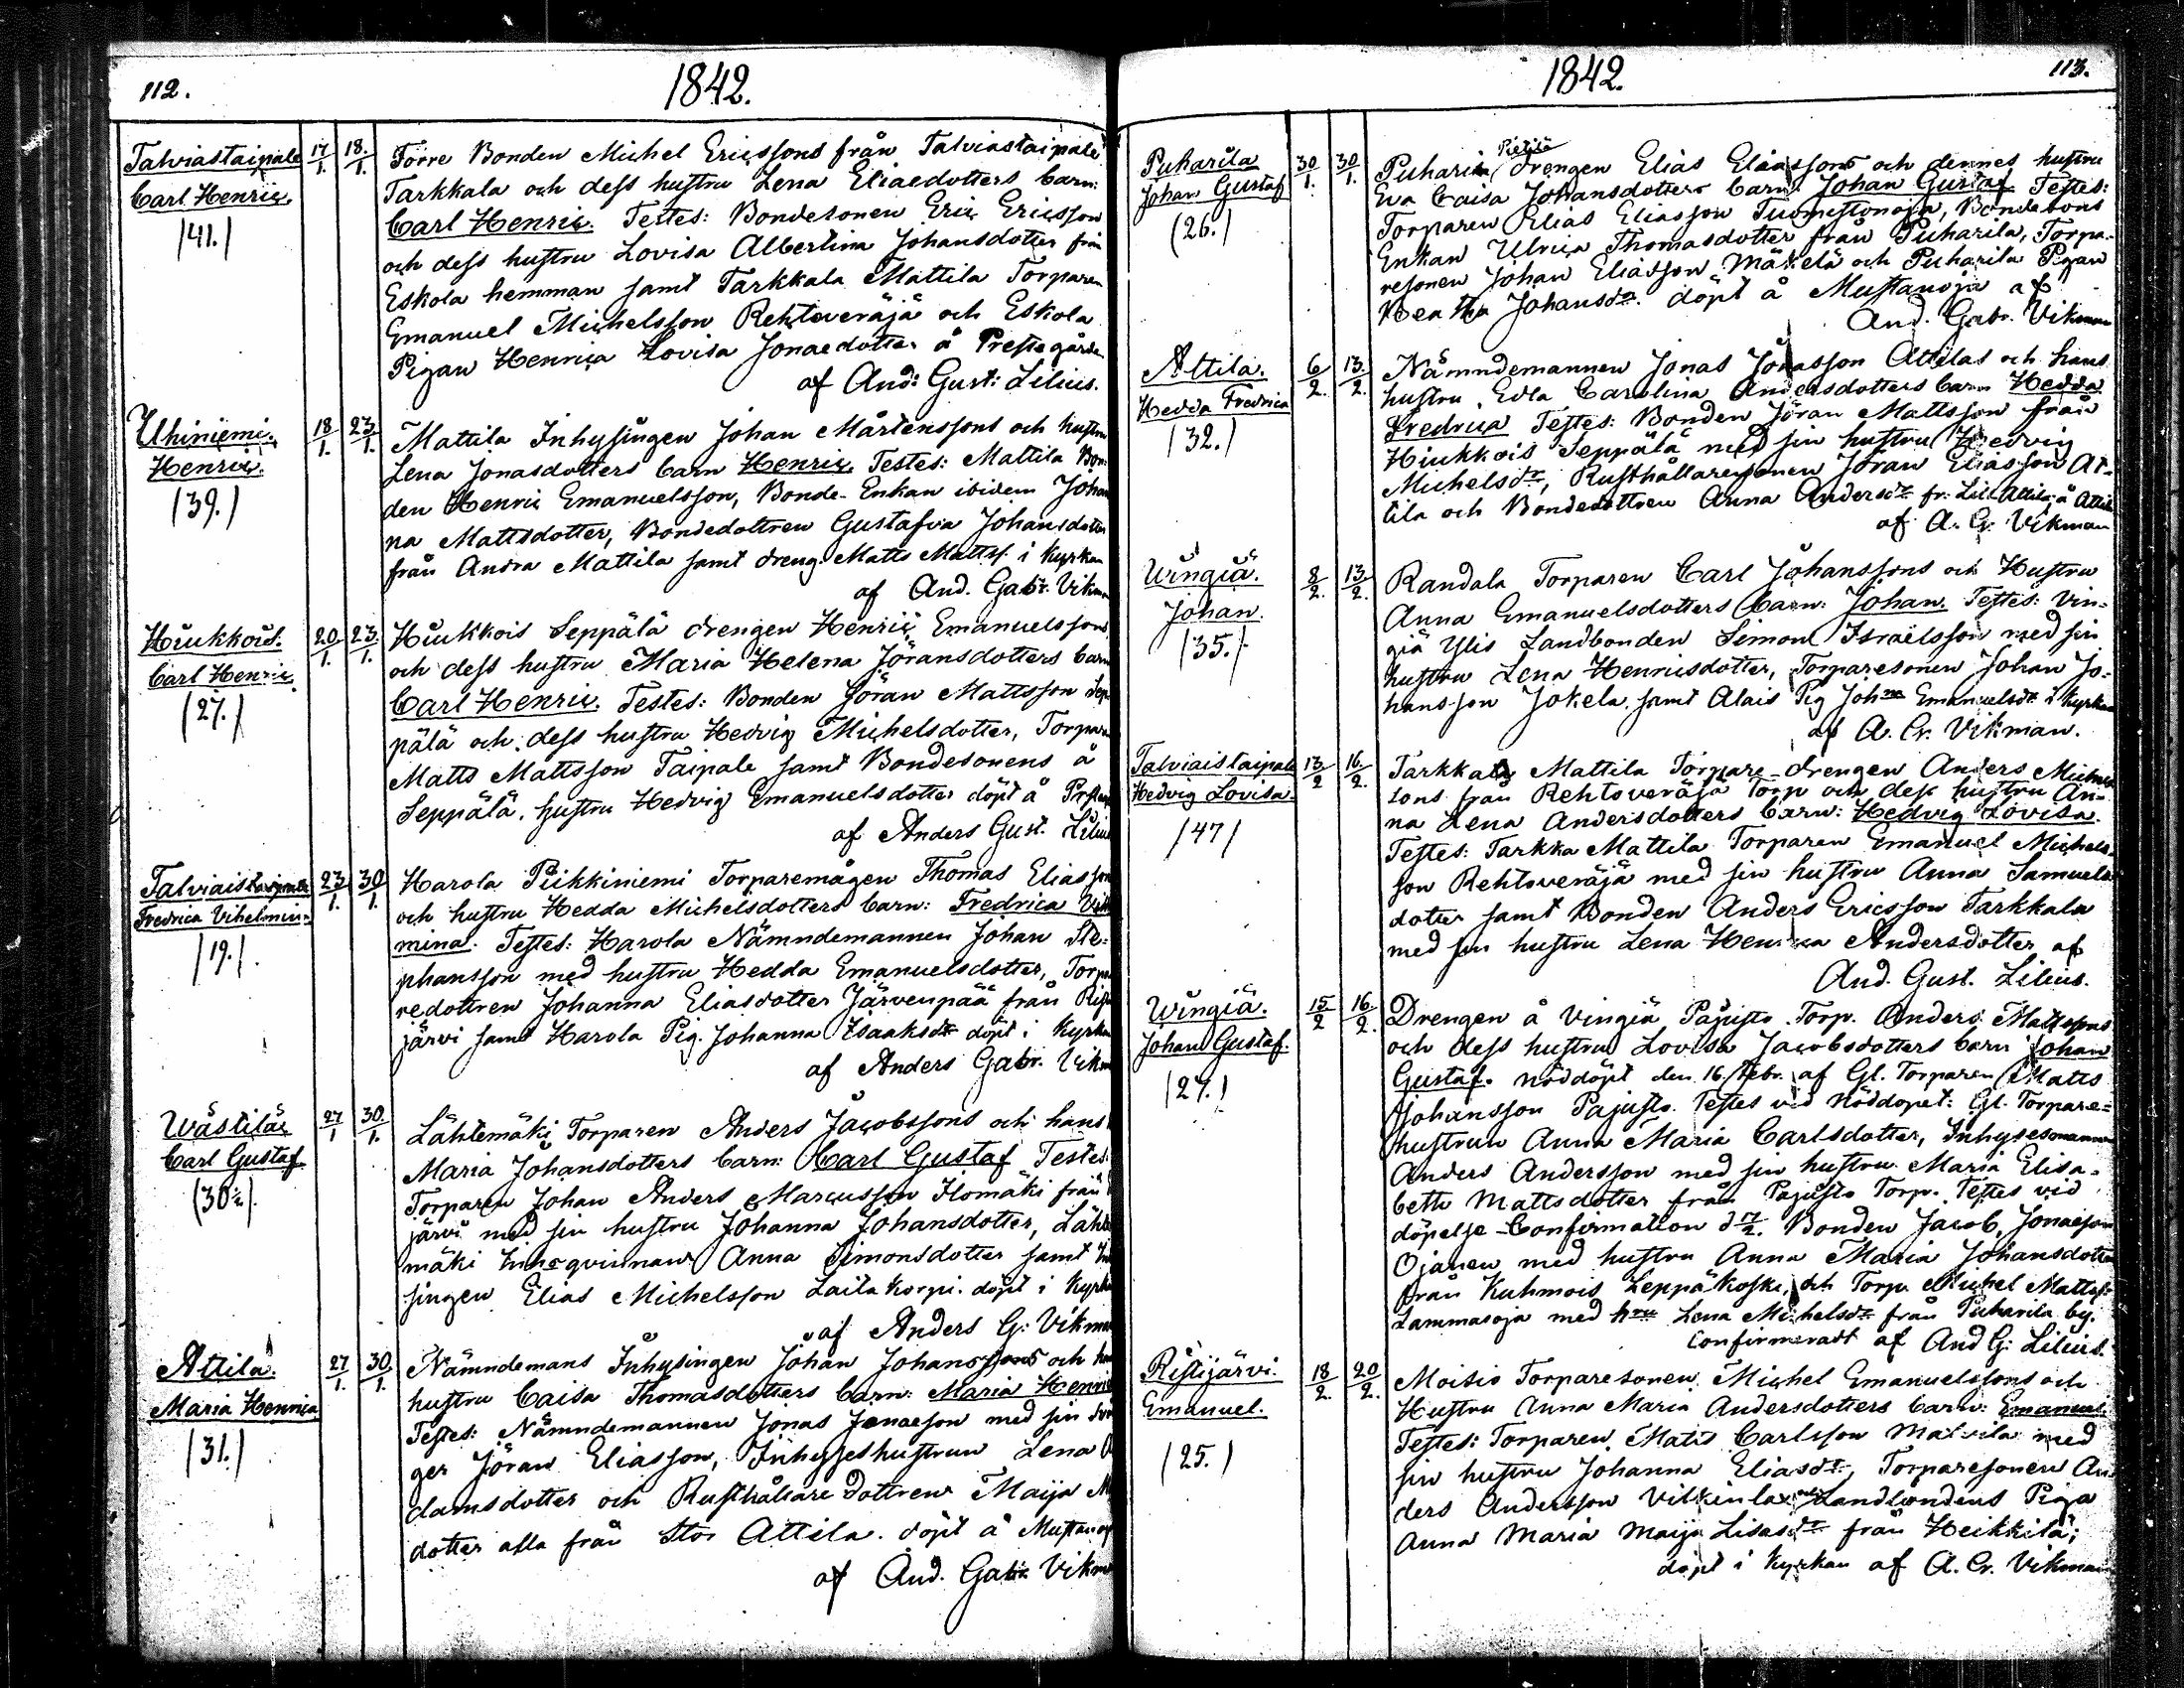 112.
1842.
Talviastaipale
Carl Henric.
/41./
17/1. 18./1.
Förre Bonden Michel Ericssons från Talviastaipale
Tarkkala och dess hustru Lena Eliaedotters barn:
Carl Henric. Testes: Bondesonen Eric Ericsson
och dess hustru Lovisa Albertina Johansdotter från
Eskola hemman samt Tarkkala Mattila Torparen
Emanuel Michelsson Rehtoveräjä och Eskola
Pigan Henrica Lovisa Jonaedotter å Prestegården
af And: Gust: Lilius.
Uhiniemi.
Henric.
/39./
18/1. 23/1.
Mattila Inhysingen Johan Mårtenssons och hustru
Lena Jonasdotters barn Henric. Testes: Mattila Bon-
den Henric Emanuelsson, Bonde-Enkan ibidem Johan
na Mattsdotter, Bondedottren Gustafva Johansdotter
från Andra Mattila samt dreng. Matts Mattss. i Kyrkan
af And. Gabr. Vikman
Hiukkois.
Carl Henric
/27./
20/1. 23/1.
Hiukkois Seppälä drengen Henric Emanuelssons
och dess hustru Maria Helena Jöransdotters barn
Carl Henric. Testes: Bonden Jöran Mattsson Sep
pälä och dess hustru Hedvig Michelsdotter, Torparen
Matts Mattsson Taipale samt Bondesonens å
Seppälä, hustru Hedvig Emanuelsdotter döpt å
af Anders Gust. Lilius
Talviaistaipale
Fredrica Vilhelmina
/19./
23/1. 30/1.
Harola Piikkiniemi Torparemågen Thomas Eliassons
och hustru Hedda Michelsdotters barn: Fredrica Vilh
mina. Testes: Harola Nämndemannen Johan Ste-
phansson med hustru Hedda Emanuelsdotter, Torpa
redottren Johanna Eliasdotter Järvenpää från Risti
järvi samt Harola Pig. Johanna Isaaksdr döpt i Kyrkan
af Anders Gabr. Vikman
Wästilä
Carl Gustaf
(30½)
27/1 30./1.
Lähtemäki Torparen Anders Jacobssons och hans
Maria Johansdotters barn: Carl Gustaf Testes:
Torparen Johan Anders Marcusson Ilomäki från
järvi med sin hustru Johanna Johansdotter, Lähte
mäki Anna Simonsdotter samt In
singen Elias Michelsson Laitakorpi. döpt i Kyrkan
af Anders G: Vikman
Attila.
Maria Henrica
/31./
27/1. 30/1.
Nämndemans Inhysingen Johan Johanssons och han
hustru Caisa Thomasdotters barn: Maria Henric
Testes: Nämndemannen Jonas Jonaeson med sin
ger Jöran Eliasson, Inhysseshustrun Lena A
damsdotter och Rusthållare dottren Maija
dotter alla från Stor Attila. döpt å Mustanoj
af And. Gabr. Vikman
113.
1842.
Puharila
Johan Gustaf
(26./
30/1. 30/1.
Pietilä
Puharila drengen Elias Eliassons och dennes hustru
Eva Caisa Johansdotters barn: Johan Gustaf Testes:
Torparen Elias Eliasson Tuomistonoja, Bondesons
Enkan Ulrica Thomasdotter från Puharila, Torpa-
resonen Johan Eliasson Mäkelä och Puharila Pigan
Beatha Johansdr. döpt å Mustanoja af
And. Gabr. Vikman
Attila.
Hedda Fredrica
/32./
6/2. 13./2.
Nämndemannen Jonas Jonasson Attilas och hans
hustru Edla Carolina Andersdotters barn Hedda
Fredrica Testes: Bonden Jöran Mattsson från
Hiukkois Seppälä med sin hustru Hedvig
Michelsdr, Rusthållaresonen Jöran Eliasson At-
tila och Bondedottren Anna Andersdr fr: Lill Attila; å Attila
af A. G. Vikman
Wingiä.
Johan.
/35./
8/2. 13./2.
Randala Torparen Carl Johanssons och Hustru
Anna Emanuelsdotters barn: Johan. Testes: Vin-
giä Ylis Landbonden Simon Israelsson med sin
hustru Lena Henricsdotter, Torparesonen Johan Jo-
hansson Jokela, samt Alais Pig Johna Emanuelsdr i Kyrkan
af A. G. Vikman.
Talviaistaipale
Hedvig Lovisa.
/47/
13/2 16./2.
Tarkkala Mattila Torpare-drengen Anders Michels
sons från Rehtoveräjä Torp och dess hustru An-
na Lena Andersdotters barn: Hedvig Lovisa.
Testes: Tarkka Mattila Torparen Emanuel Michels-
son Rehtoveräjä med sin hustru Anna Samuels
dotter samt Bonden Anders Ericsson Tarkkala
med sin hustru Lena Henrica Andersdotter af
And. Gust. Lilius.
Wingiä.
Johan Gustaf.
/27./
15/2 16./2.
Drengen å Vingiä Pajusto Torp. Anders Mattssons
och dess hustru Lovisa Jacobsdotters barn Johan
Gustaf. nöddöpt den 16. Febr. af Gl. Torparen Matts
Johansson Pajusto. Testes vid Nöddopet: Gl. Torpare-
hustrun Anna Maria Carlsdotter, Inhysesmannen
Anders Andersson med sin hustru Maria Elisa-
beth Mattsdotter från Pajusto Torp. Testes vid
döpelse-Confirmation d Bonden Jacob Jonaeson
Ojanen med hustru Anna Maria Johansdotter
från Kuhmois Leppäkoski, och Torp. Michel Mattss:
Lammasoja med hru Lena Michelsdr från Puharila by.
Confirmeradt af And G: Lilius.
Ristijärvi.
Emanuel.
/25./
18/2. 20/2.
Moisio Torparesonen Michel Emanuelssons och
Hustru Anna Maria Andersdotters barn: Emanuel.
Testes: Torparen Matts Carlsson Matvila med
sin hustru Johanna Eliasdr, Torparesonen An
ders Andersson Vilkinla Landbondens Piga
Anna Maria Maija Lisasdr från Heikkilä;
döpt i Kyrkan af A. G. Vikman